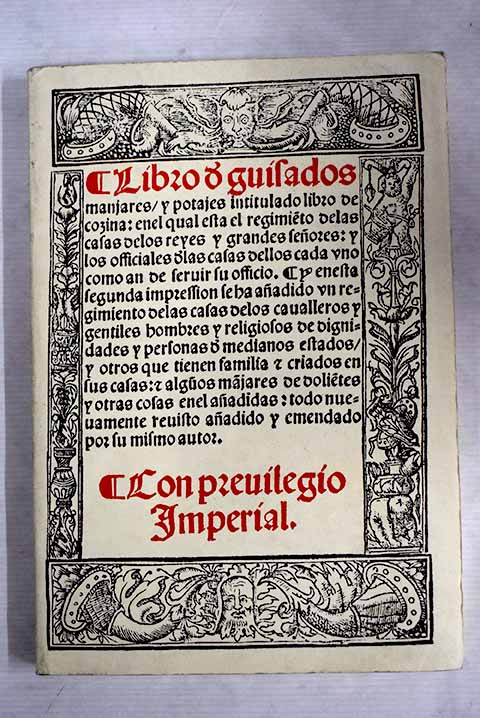 ¶Libro đ guisados
manjares/ y potajes intitulado libro de
cozina: enel qual esta el regimiẽto delas
casas delos reyes y grandes señores: y
los officiales đlas casas dellos cada vno
como an de seruir su officio. ¶Y enesta
segunda impression se ha añadido vn re-
gimiento delas casas delos caualleros y
gentiles hombres y religiosos de digni-
dades y personas đ medianos estados/
y otros que tienen familia ⁊ criados en
sus casas: ⁊ algũos mãjares de doliẽtes
y otras cosas enel añadidas: todo nue-
uamente reuisto añadido y emendado
por su mismo autor.
¶Con preuilegio
Imperial.